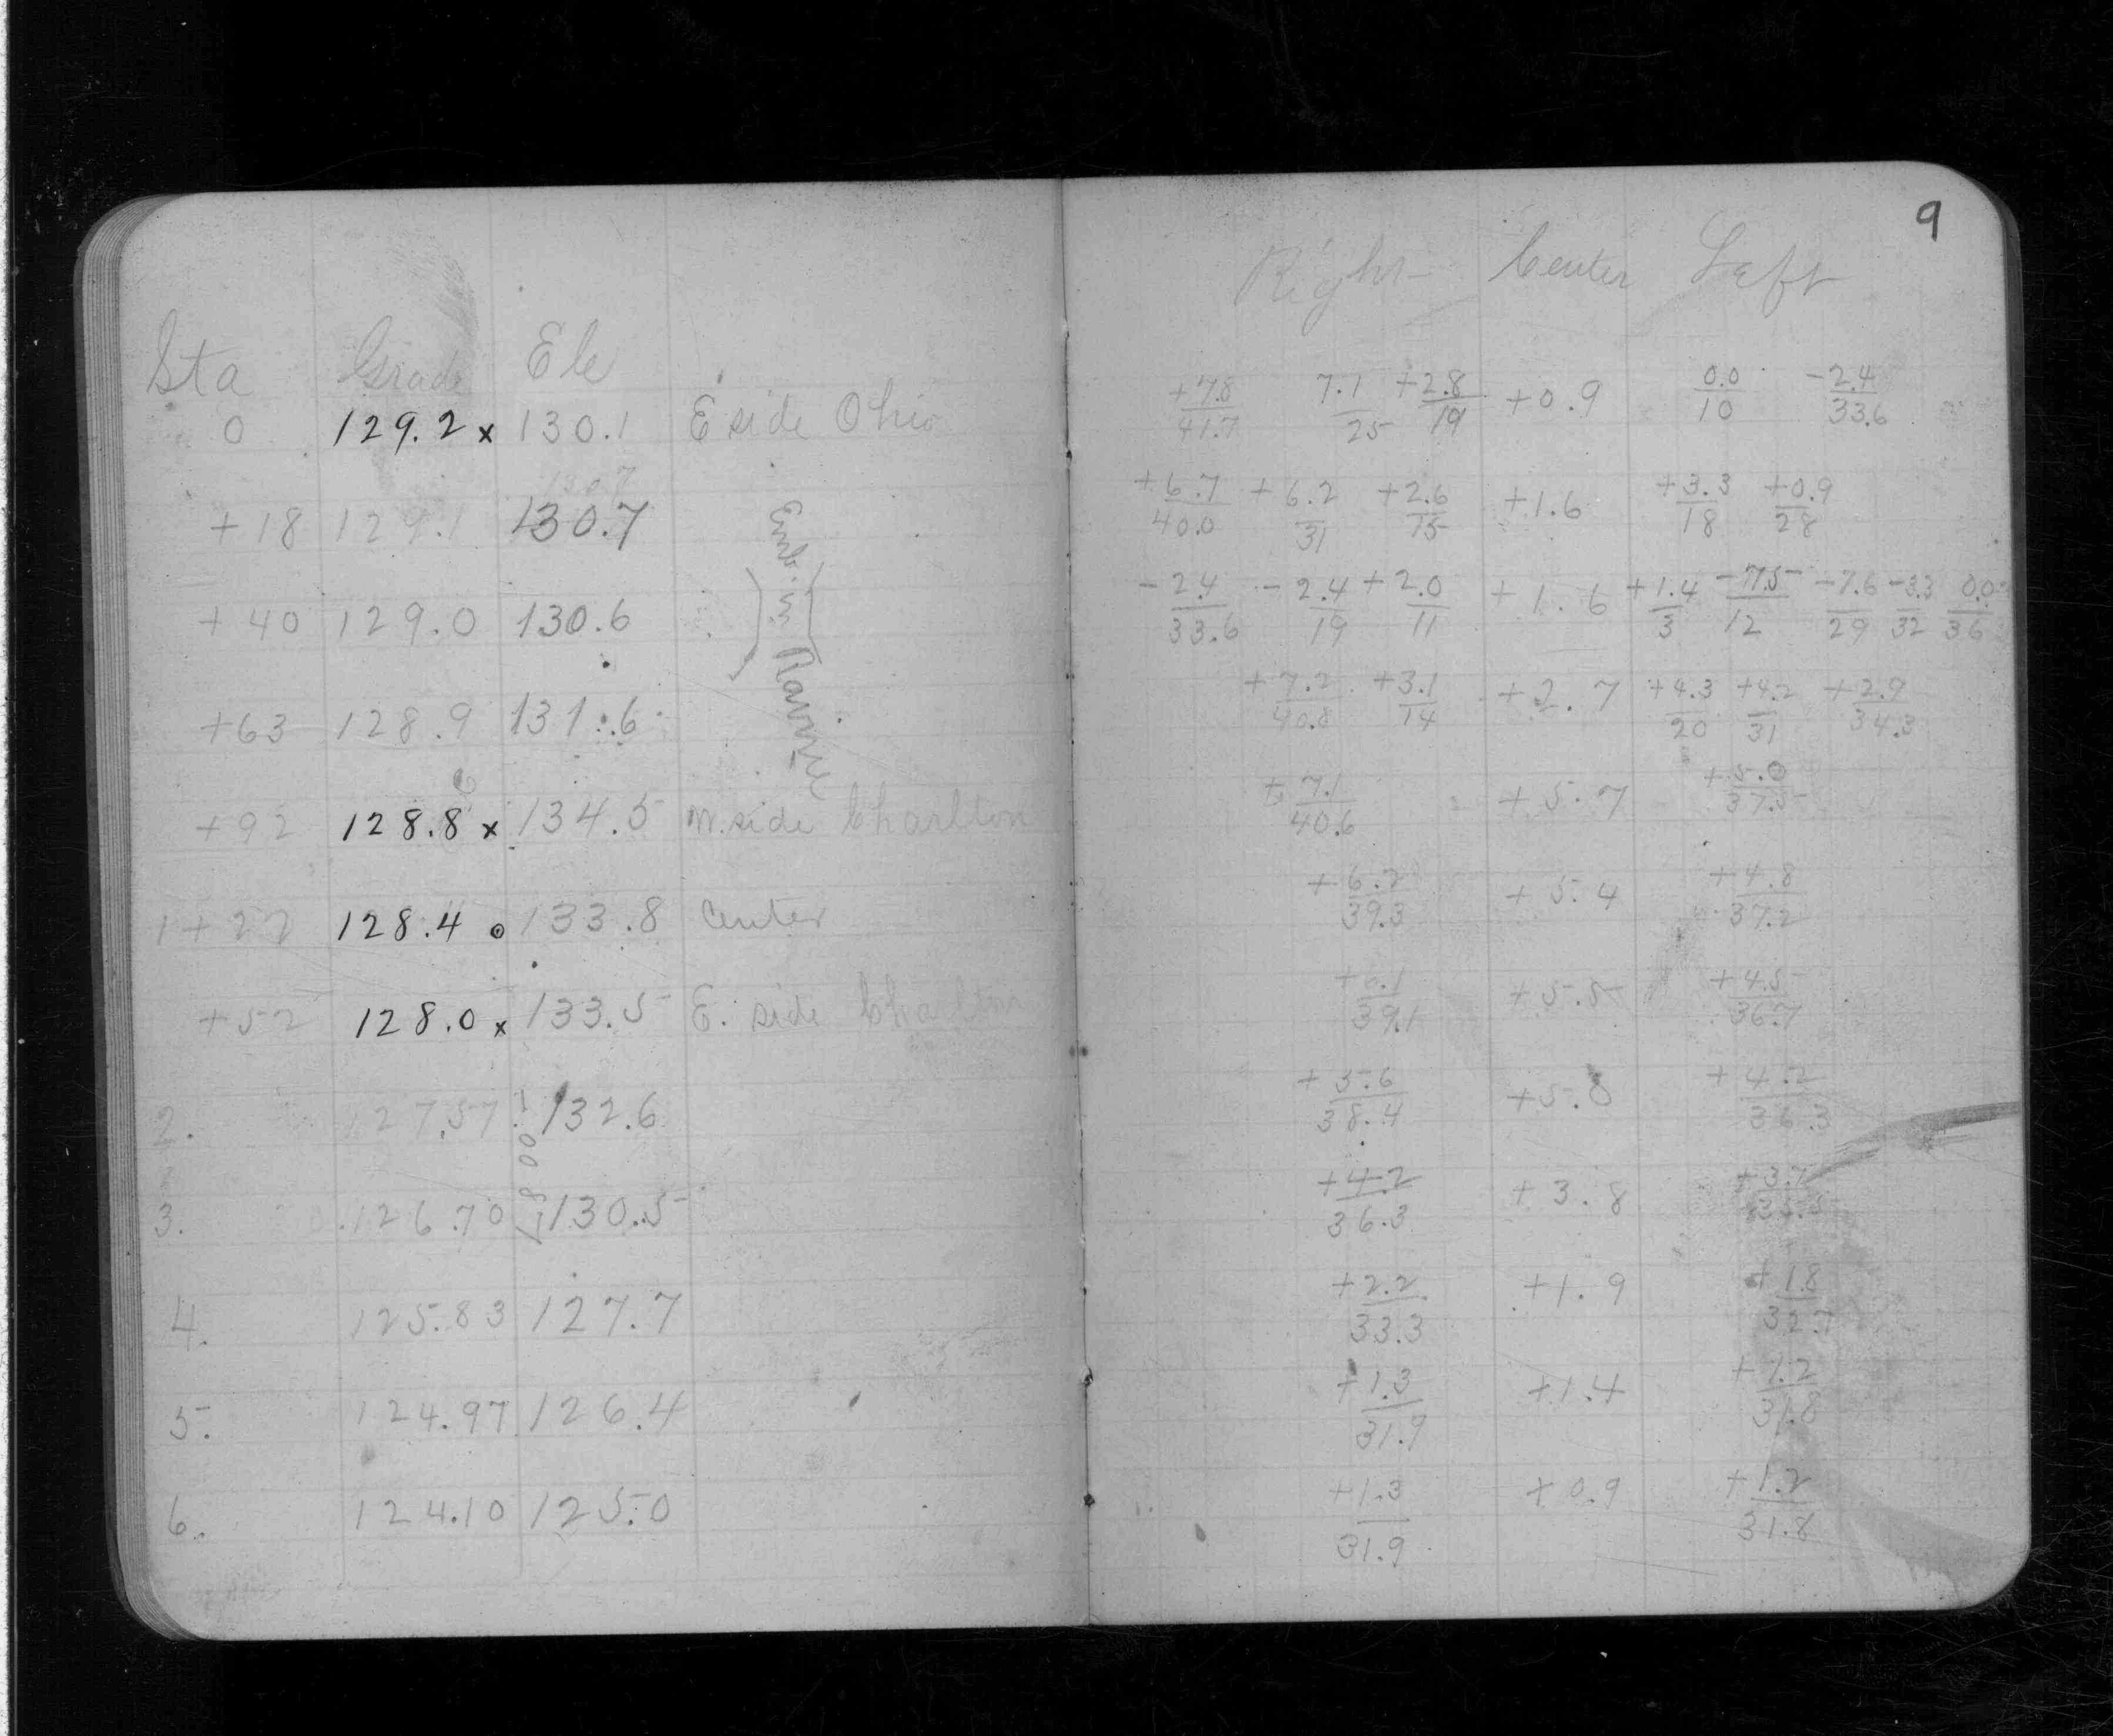 Sta Grade Ele
0 129.2 x 130.1 E side Ohio
130.7
+18 129.1 130.7
+40 129.0 130.6
Emb. in Ravine
+63 128.9 131.6
+92 128.8 x 134.5 W. side Charlton
1+22 128.4 o 133.8 Center
+52 128.0 x 133.5 E. side Charlton
2. 127.57 132.6
3. 126.70 130.5
4. 125.83 127.7
5. 124.97 126.4
6. 124.10 125.0
9
Right Center Left
+7.8/41.7 7.1/25 +2.8/19 +0.9 0.0/10 -2.4/33.6
+6.7/40.0 +6.2/31 +2.6/15 +1.6 +3.3/18 +0.9/28
-2.4/33.6 -2.4/19 +2.0/11 +1.6 +1.4/3 -7.5/12 -7.6/29 -3.3/32 0.0/36
+7.2/40.8 +3.1/14 +2.7 +4.3/20 +4.2/31 +2.9/34.3
+7.1/40.6 +5.7 +5.0/37.5
+6.2/39.3 +5.4 +4.8/37.2
+6.1/39.1 +5.5 +4.5/36.7
+5.6/38.4 +5.0 +4.2/36.3
+4.2/36.3 +3.8 +3.7
+2.2/33.3 +1.9 +1.8/32.7
+1.3/31.9 +1.4 +1.2/31.8
+1.3/31.9 +0.9 +1.2/31.8